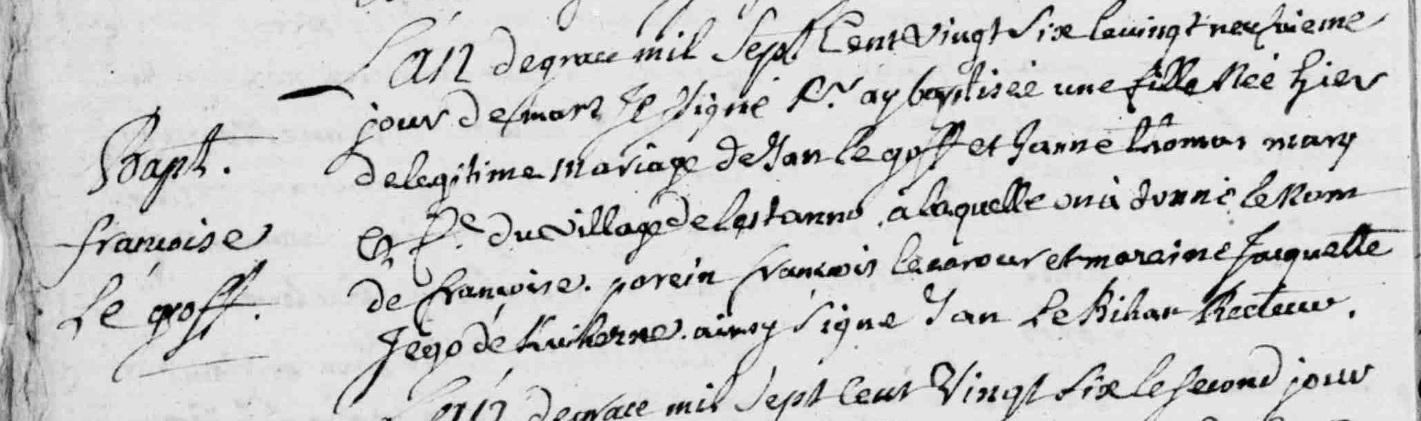 L'an de grace mil Sept Cent Vingt Six le vingt neufvieme
jour de mars Je Signé Rr. ay baptisée une fille Née hier
Bapt. de legitime mariage de Jan Le goff et Janne thomas mary
françoise & f. du village de lestanno a laquelle on à donné le Nom
Le goff. de françoise. parein françois le marine Jacquette
Jego de ainsy Signe Jan Le Bihan Recteur.
L'an de grace mil Sept Cent Vingt Six le second jour